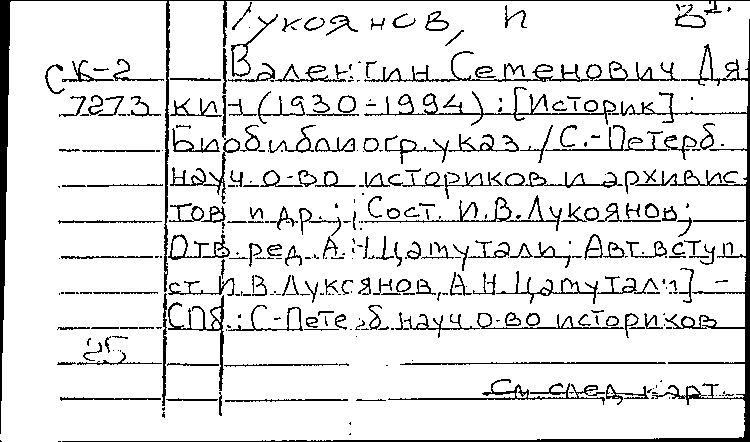 Лукоянов, И В 1.
СК-2 Валентин Семенович Дя-
7273 кин (1930-1994) : [Историк] :
Биобиблиогр. указ. / С.-Петерб.
науч. о-во историков и архивис-
тов и др.; [Сост. И.В. Лукоянов;
Отв. ред. А.Н. Цамутали; Авт. вступ.
ст. И.В. Лукоянов, А.Н. Цамутали] -
СПб.: С-Петерб науч о-во историков
25
См след карт.